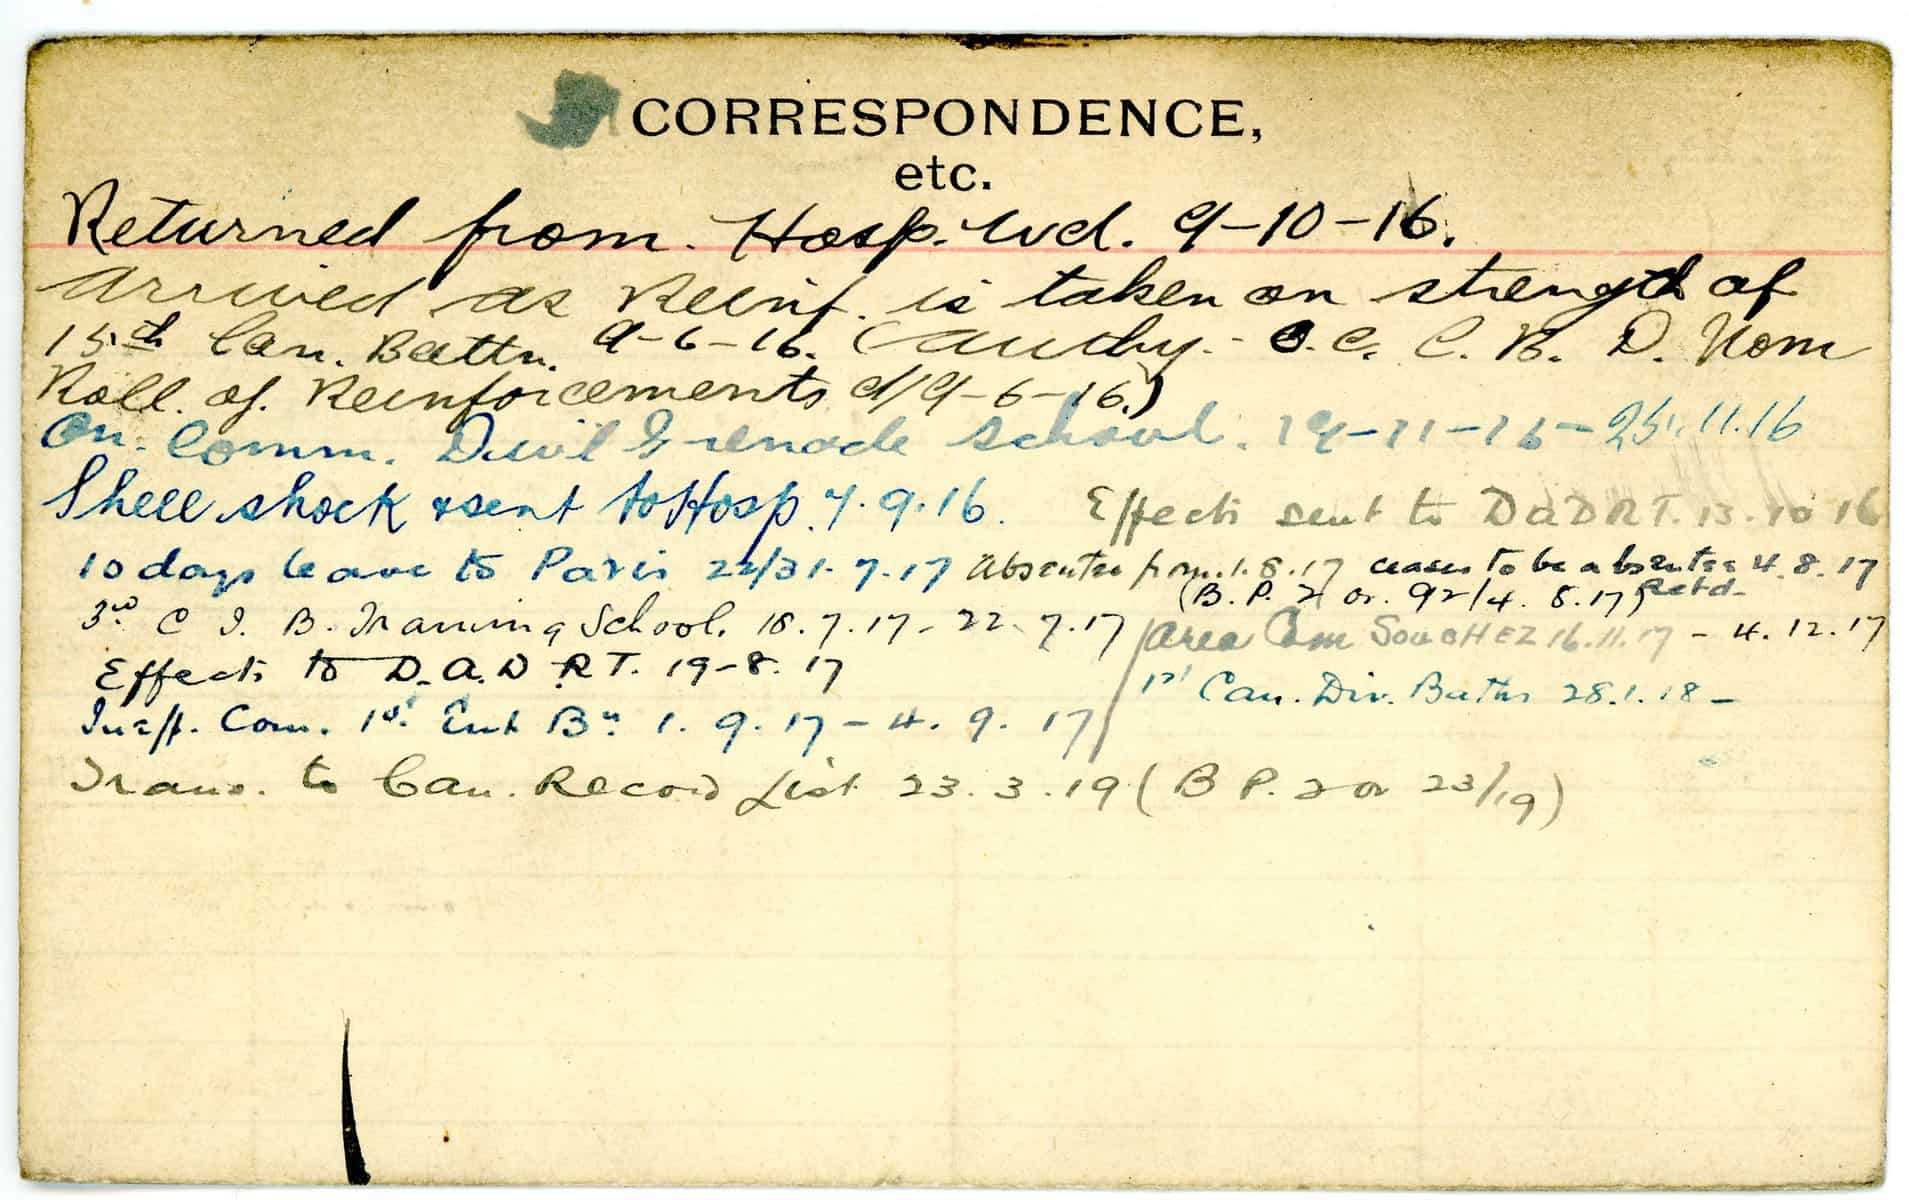 CORRESPONDENCE,
etc.
Returned from. Hosp. Wd. 9-10-16.
Arrived as Reinf. is taken on strength of
15th Can. Battn. 9-6-16. (Authy.- O.C. C. B. D. Nom
Roll. of. Reinforcements d/9-6-16.)
On. Comm. Divil Grenade School. 19-11-16-25.11.16
Shell shock & sent to Hosp. 7.9.16. Effects sent to DADRT. 13.10 16
10 days leave to Paris 22/31.7.17 Absentee from.1.8.17 ceases to be absentee 4.8.17
(B.P. 2 or. 92/4.8.17) Retd-
3rd C I. B. Training School. 18.7.17- 22.7.17 Area Com SOUCHEZ 16.11.17 - 4.12.17
Effects to D.A.D.R.T. 19-8.17
1st Can. Div. Baths 28.1.18 -
Com. 1st Ent Bn 1.9.17 - 4.9.17
Trans. to Can. Record List 23.3.19 (B P. 2 or 23/19)